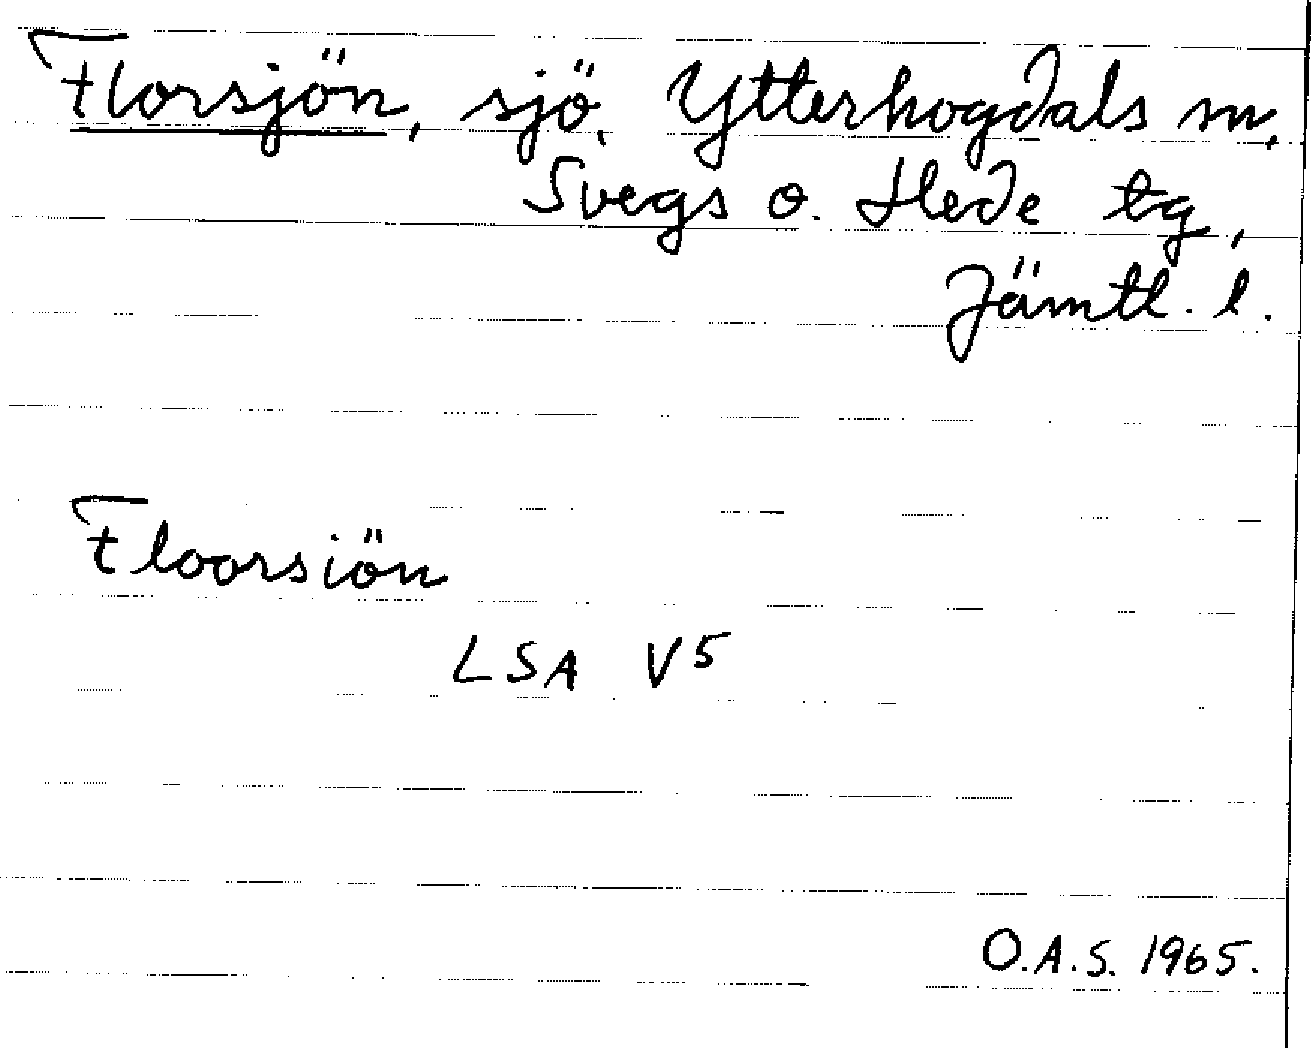 Florsjön, sjö, Ytterhogdals sn,
Svegs o. Hede tg,
Jämtl. l.
Floorsiön
LSA V5
O.A.S. 1965.